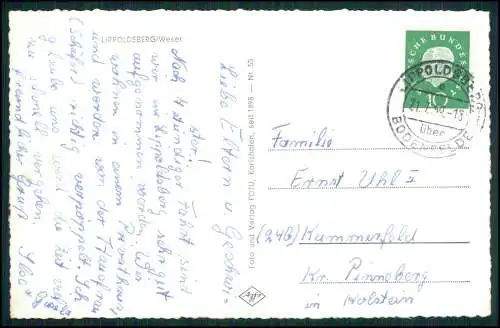 LIPPOLDSBERG/Weser
Liebe Eltern u. Geschw.
Nach 4 stündiger Fahrt sind
wir in Lippoldsberg sehr gut
aufgenommen worden. Wir
wohnen in einem Privathaus
und werden von der Frau
richtig verpflegt. Ich
glaube uns wird die Zeit
nur schnell vergehen.
Foto und Verlag FOTU, Karlshafen, seit 1898 — Nr. 55
DEUTSCHE BUNDESPOST
10
LIPPOLDSBERG
über
BODENFELDE
Familie
Ernst Uhl I
(24b) Kummerfeld
Kr. Pinneberg
in Holstein